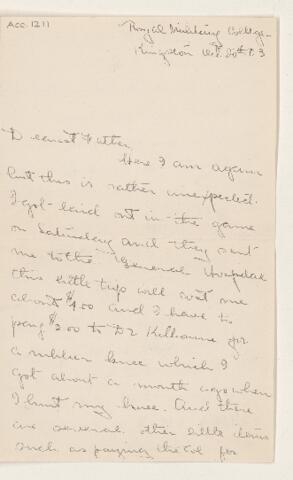 Acc. 1211
Royal Military College
Kingston Oct. 20th 03
Dearest Father,
Here I am again
but this is rather unexpected.
I got laid out in the game
on Saturday and they sent
me to the General Hospital
this little trip will cost me
about $9.00 and I have to
pay $2.00 to Dr Kilborne for
a rubber knee which I
got about a month ago when
I hurt my knee. And there
are several other little items
such as paying the Col for